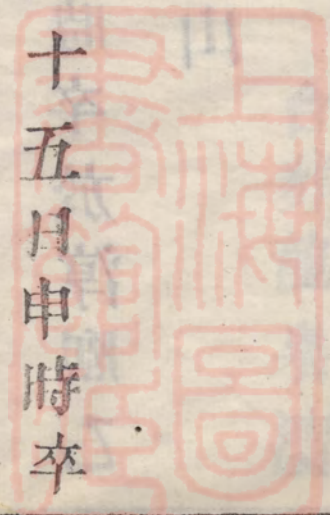 十五日申時卒
上海圖
書館藏